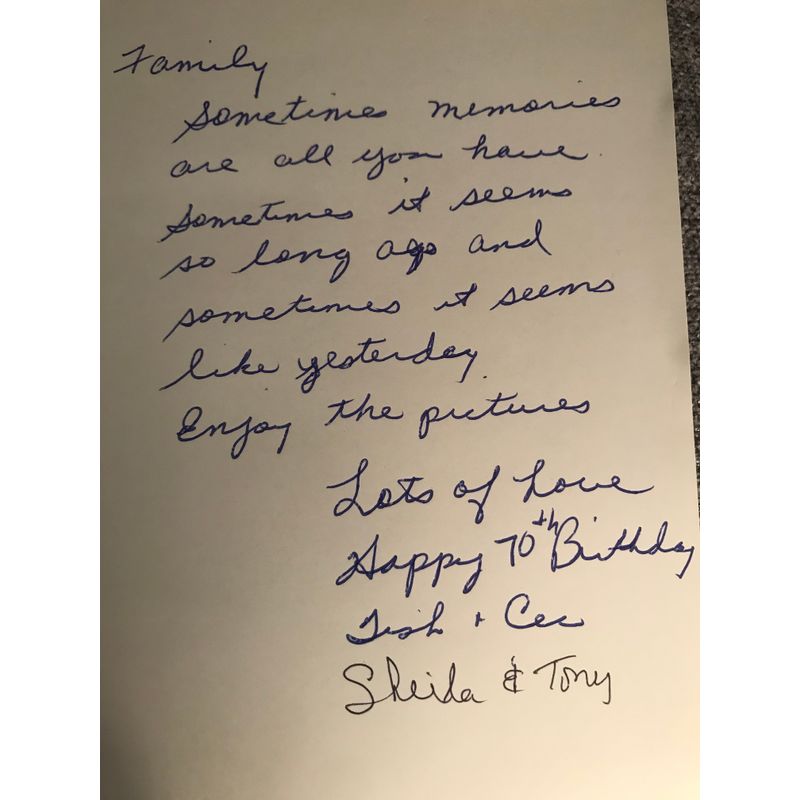 Family
Sometimes memories
are all you have
sometimes it seems
so long ago and
sometimes it seems
like yesterday
Enjoy the pictures
Lots of Love
Happy 70th Birthday
Tish + Cec
Sheila & Tony